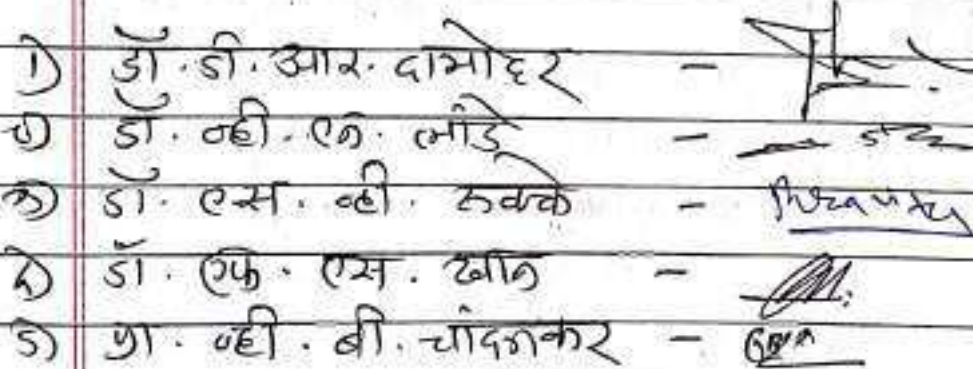 १) डॉ. डी. आर. दामोदर -
२) डॉ. व्ही. एन. लांडे -
३) डॉ. एस. व्ही. रुक्के -
४) डॉ. एफ. एस. खान -
५) प्रा. व्ही. बी. चांदनकर -